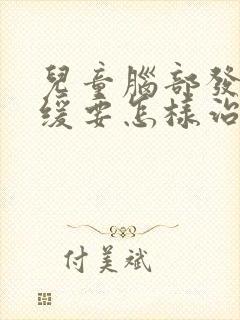 兒童腦部發
缓要怎樣治
付美斌